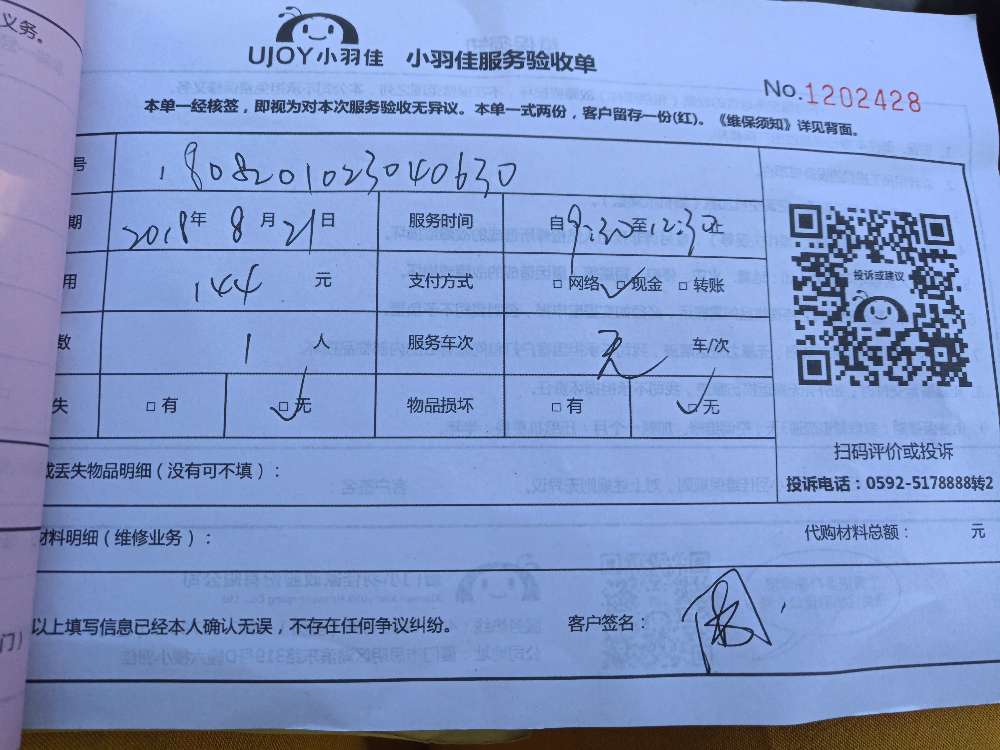 义务。
UJOY小羽佳 小羽佳服务验收单
No.1202428
本单一经核签，即视为对本次服务验收无异议。本单一式两份，客户留存一份(红)。《维保须知》详见背面。
号 1808201023040630
期 2018年 8月 21日 服务时间 自9:30至12:30止
用 144 元 支付方式 □ 网络 □ 现金 □ 转账
投诉或建议
数 1 人 服务车次 无 车/次
失 □ 有 □ 无 物品损坏 □ 有 □ 无
扫码评价或投诉
或丢失物品明细（没有可不填）：
投诉电话：0592-5178888转2
材料明细（维修业务）： 代购材料总额： 元
以上填写信息已经本人确认无误，不存在任何争议纠纷。 客户签名：
门）